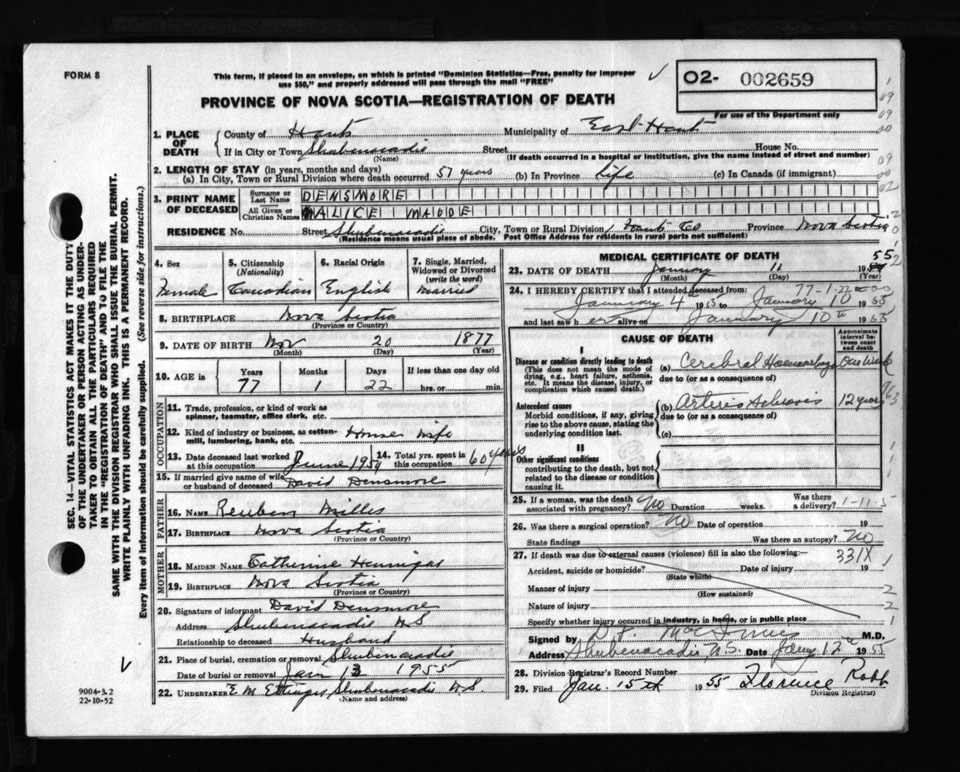 FORM 8
This form, if placed in an envelope, on which is printed "Dominion Statistics—Free, penalty for improper
use $50," and properly addressed will pass through the mail "FREE"
O2- 002659
For use of the Department only
PROVINCE OF NOVA SCOTIA—REGISTRATION OF DEATH
SEC. 14—VITAL STATISTICS ACT MAKES IT THE DUTY
OF THE UNDERTAKER OR PERSON ACTING AS UNDER-
TAKER TO OBTAIN ALL THE PARTICULARS REQUIRED
IN THE "REGISTRATION OF DEATH" AND TO FILE THE
SAME WITH THE DIVISION REGISTRAR WHO SHALL ISSUE THE BURIAL PERMIT.
WRITE PLAINLY WITH UNFADING INK. THIS IS A PERMANENT RECORD.
Every item of information should be carefully supplied. (See reverse side for instructions.)
1. PLACE OF DEATH County of Hants Municipality of East Hants
If in City or Town Shubenacadie Street House No.
(Name) (If death occurred in a hospital or institution, give the name instead of street and number)
2. LENGTH OF STAY (in years, months and days)
(a) In City, Town or Rural Division where death occurred 57 years (b) In Province Life (c) In Canada (if immigrant)
3. PRINT NAME OF DECEASED
Surname or Last Name DENSMORE
All Given or Christian Names ALICE MAUDE
RESIDENCE No. Street Shubenacadie City, Town or Rural Division Hants Co Province Nova Scotia
(Residence means usual place of abode. Post Office Address for residents in rural parts not sufficient)
4. Sex Female
5. Citizenship (Nationality) Canadian
6. Racial Origin English
7. Single, Married, Widowed or Divorced (write the word) Married
8. BIRTHPLACE Nova Scotia
(Province or Country)
9. DATE OF BIRTH Nov 20 1877
(Month) (Day) (Year)
10. AGE in Years Months Days If less than one day old
77 1 22 hrs. or min.
OCCUPATION
11. Trade, profession, or kind of work as
spinner, teamster, office clerk, etc.
12. Kind of industry or business, as cotton-
mill, lumbering, bank, etc. House Wife
13. Date deceased last worked at this occupation June 1954
14. Total yrs. spent in this occupation 60 years
15. If married give name of wife
or husband of deceased David Densmore
FATHER
16. NAME Reuben Miller
17. BIRTHPLACE Nova Scotia
(Province or Country)
MOTHER
18. MAIDEN NAME Catherine Hannigar
19. BIRTHPLACE Nova Scotia
(Province or Country)
20. Signature of informant David Densmore
Address Shubenacadie N S
Relationship to deceased Husband
21. Place of burial, cremation or removal Shubenacadie
Date of burial or removal Jan 13 1955
22. UNDERTAKER E M Ettinger, Shubenacadie N.S.
(Name and address)
9004-3.2
22-10-52
MEDICAL CERTIFICATE OF DEATH
23. DATE OF DEATH January 11 1955
(Month) (Day)
24. I HEREBY CERTIFY that I attended deceased from: 77-1-22
January 4th 1955 to January 10 1955
and last saw her alive on January 10th 1955
CAUSE OF DEATH
Approximate interval between onset and death
I
Disease or condition directly leading to death
(This does not mean the mode of
dying, e.g., heart failure, asthenia,
etc. It means the disease, injury, or
complication which caused death.)
(a) Cerebral Haemorrhage One Week
due to (or as a consequence of)
Antecedent causes
Morbid conditions, if any, giving
rise to the above cause, stating the
underlying condition last.
(b) Arterio Sclerosis 12 years
due to (or as a consequence of)
(c)
II
Other significant conditions
contributing to the death, but not
related to the disease or condition
causing it.
25. If a woman, was the death
associated with pregnancy? No Duration weeks. Was there a delivery? 1-11-5
26. Was there a surgical operation? No Date of operation 19
State findings Was there an autopsy? No
27. If death was due to external causes (violence) fill in also the following:— 331X
Accident, suicide or homicide? Date of injury 19
(State which)
Manner of injury
(How sustained)
Nature of injury
Specify whether injury occurred in industry, in home, or in public place
Signed by MacInnis M.D.
Address Shubenacadie N.S. Date Jany 12th 1955
28. Division Registrar's Record Number
29. Filed Jan. 15th 1955 Florence Robb
Division Registrar